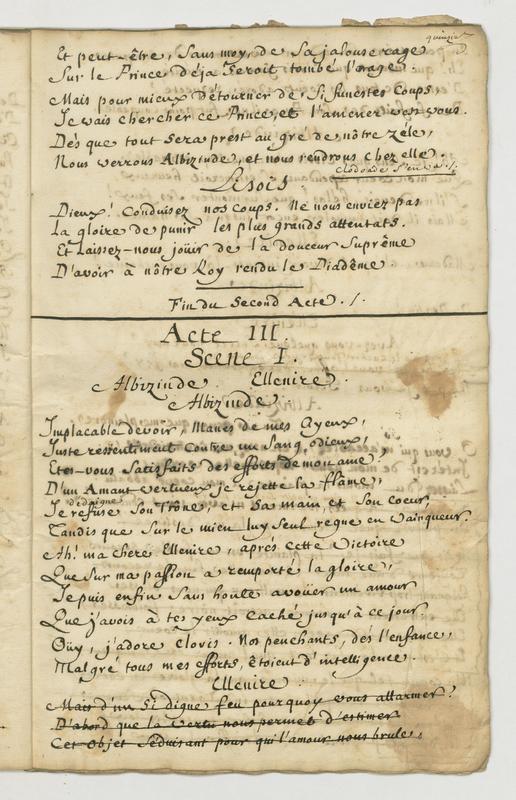 quinzie
Et peut-être, sans moy, de sa jalouse rage
Sur le Prince déja seroit tombé l'orage.
Mais pour mieux détourner de si funestes coups,
Je vais chercher ce Prince, et l'amener vers vous.
Dès que tout sera prest au gré de nôtre zéle,
Nous verrons Albizinde, et nous rendrons chez elle.
Clodoade s'en va ./.
Lisois.
Dieux! Conduisez nos coups. Ne nous enviez pas
La gloire de punir les plus grands attentats.
Et laissez-nous joüir de la douceur suprême
D'avoir à nôtre Roy rendu le Diadême
Fin du Second Acte ./.
Acte III.
Scene I.
Albizinde. Ellenire.
Albizinde.
Implacable devoir, Manes de mes Ayeux,
Juste ressentiment contre un sang odieux,
Etes-vous satisfaits des efforts de mon ame?
D'un Amant vertueux je rejette la flâme,
dédaigne
Je refuse son Trône, et sa main, et son coeur,
Tandis que sur le mien luy seul regne en vainqueur.
Ah! ma chere Ellenire, aprés cette victoire
Que sur ma passion a remporté la gloire,
Je puis enfin sans honte avoüer un amour
Que j'avois à tes yeux caché jusqu'à ce jour.
Oüy, j'adore Clovis. Nos penchants, dés l'enfance,
Malgré tous mes efforts, étoient d'intelligence.
Ellenire.
Mais d'un si digne feu pourquoy vous allarmer?
D'abord que la vertu nous permet d'estimer
Cet objet séduisant pour qui l'amour nous brule,